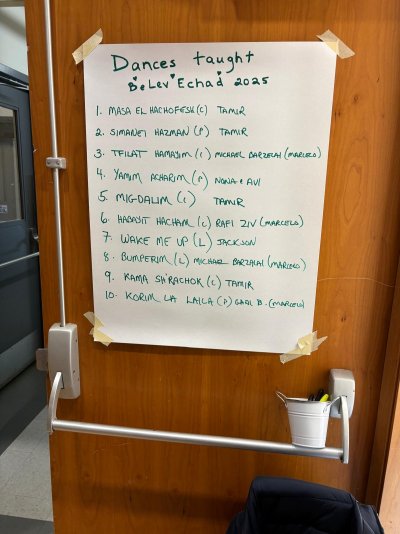 Dances taught
BeLev Echad 2025
1. MASA EL HACHOFESH (C) TAMIR
2. SIMANEI HAZMAN (P) TAMIR
3. TFILAT HAMAYIM (C) MICHAEL BARZELAI (MARCELO)
4. YAMIM ACHARIM (P) NONA & AVI
5. MIGDALIM (C) TAMIR
6. HABAYIT HACHAM (C) RAFI ZIV (MARCELO)
7. WAKE ME UP (L) JACKSON
8. BUMPERIM (L) MICHAEL BARZALAI (MARCELO)
9. KAMA SH'RACHOK (C) TAMIR
10. KORIM LA LAILA (P) GADI B. (MARCELO)